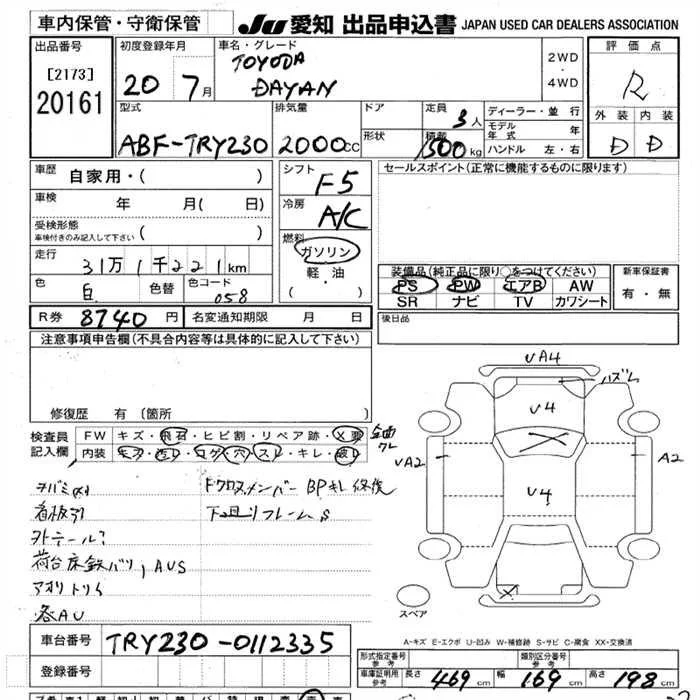 車内保管・守衛保管
JU 愛知 出品申込書 JAPAN USED CAR DEALERS ASSOCIATION
出品番号
[2173]
20161
初度登録年月
20 7月
車名・グレード
TOYODA
DAYAN
2WD
・
4WD
評価点
R
外装 内装
D D
型式
ABF-TRY230
排気量
2000cc
ドア
形状
定員 3人
積載 1500kg
ディーラー・並行
モデル年式 年
ハンドル 左・右
車歴
自家用・( )
車検
年 月( 日)
受検形態
車検付きのみ記入して下さい ( )
走行
31万1千221km
色
白
色替
色コード
058
シフト
F5
冷房
A/C
燃料
ガソリン
軽・油
( ・ )
セールスポイント(正常に機能するものに限ります)
装備品(純正品に限り○をつけてください)
PS PW エアB AW
SR ナビ TV カワシート
新車保証書
有・無
R券 8740円 名変通知期限 月 日
後日品
注意事項申告欄(不具合内容等は具体的に記入して下さい)
修復歴 有(箇所 )
検査員
記入欄
FW キズ・飛石・ヒビ割・リペア跡・X要
内装
荷台床鉄バリ, AUS
各AU
下回りフレームS
UA4
U4
UA2
A2
U4
スペア
A-キズ E-エクボ U-凹み W-補修跡 S-サビ C-腐食 XX-交換済
車台番号 TRY230-0112335
登録番号
形式指定番号
参考
類別区分番号
参考
車庫証明用
参考
長さ 469cm 幅 169cm 高さ 198cm